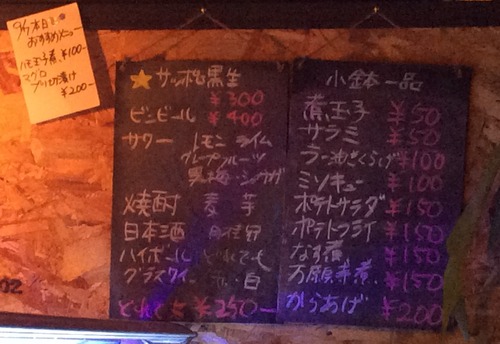 9/7 本日の
おすすめメニュー
ハモ玉子煮 ¥100-
マグロ
ブツ切り漬け
¥200-
★サッポロ黒生
¥300
ビンビール ¥400
サワー レモン ライム
グレープフルーツ
黒梅・ショウガ
焼酎 麦 芋
日本酒
ハイボール どれでも
グラスワイン 赤・白
どれでも ¥250-
小鉢一品
煮玉子 ¥50
サラミ ¥50
ラー油ざくらげ ¥100
ミソキュー ¥100
ポテトサラダ ¥150
ポテトフライ ¥150
なす煮 ¥150
万願寺煮 ¥150
からあげ ¥200
02